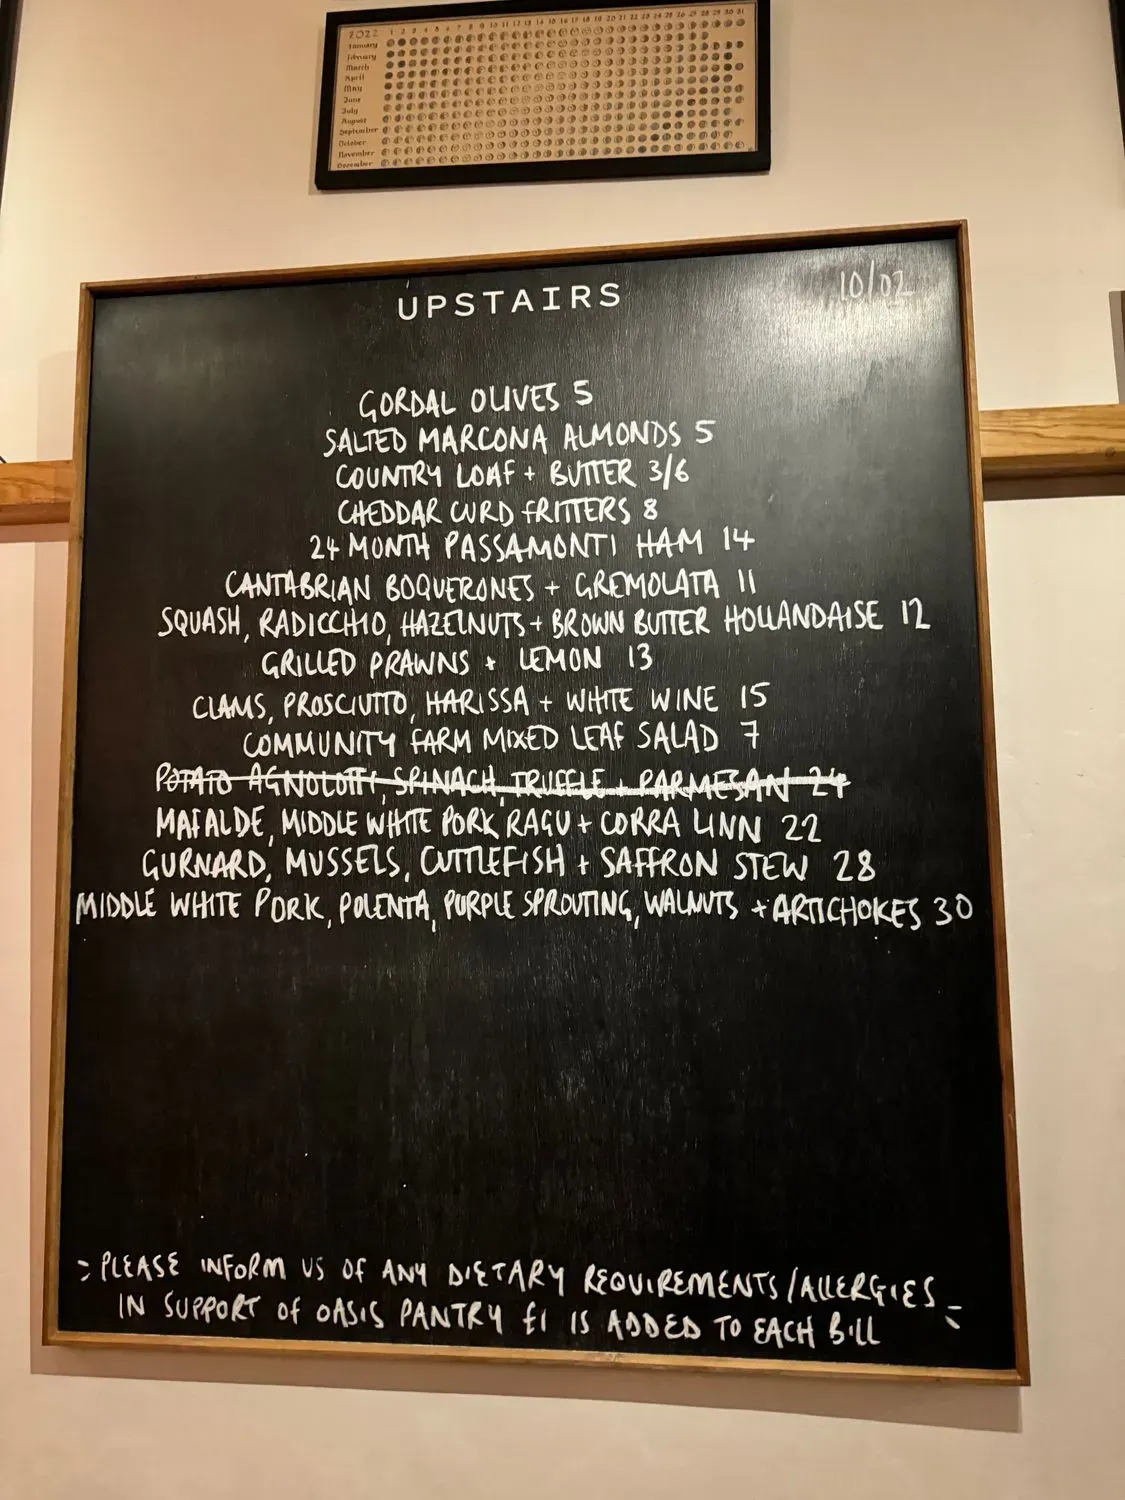 2022 1 2 3 4 5 6 7 8 9 10 11 12 13 14 15 16 17 18 19 20 21 22 23 24 25 26 27 28 29 30 31
January
February
March
April
May
June
July
August
September
October
November
December
UPSTAIRS
10/02
GORDAL OLIVES 5
SALTED MARCONA ALMONDS 5
COUNTRY LOAF + BUTTER 3/6
CHEDDAR CURD FRITTERS 8
24 MONTH PASSAMONTI HAM 14
CANTABRIAN BOQUERONES + GREMOLATA 11
SQUASH, RADICCHIO, HAZELNUTS + BROWN BUTTER HOLLANDAISE 12
GRILLED PRAWNS + LEMON 13
CLAMS, PROSCIUTTO, HARISSA + WHITE WINE 15
COMMUNITY FARM MIXED LEAF SALAD 7
POTATO AGNOLOTTI, SPINACH, TRUFFLE + PARMESAN 24
MAFALDE, MIDDLE WHITE PORK RAGU + CORRA LINN 22
GURNARD, MUSSELS, CUTTLEFISH + SAFFRON STEW 28
MIDDLE WHITE PORK, POLENTA, PURPLE SPROUTING, WALNUTS + ARTICHOKES 30
PLEASE INFORM US OF ANY DIETARY REQUIREMENTS/ALLERGIES
IN SUPPORT OF OASIS PANTRY £1 IS ADDED TO EACH BILL